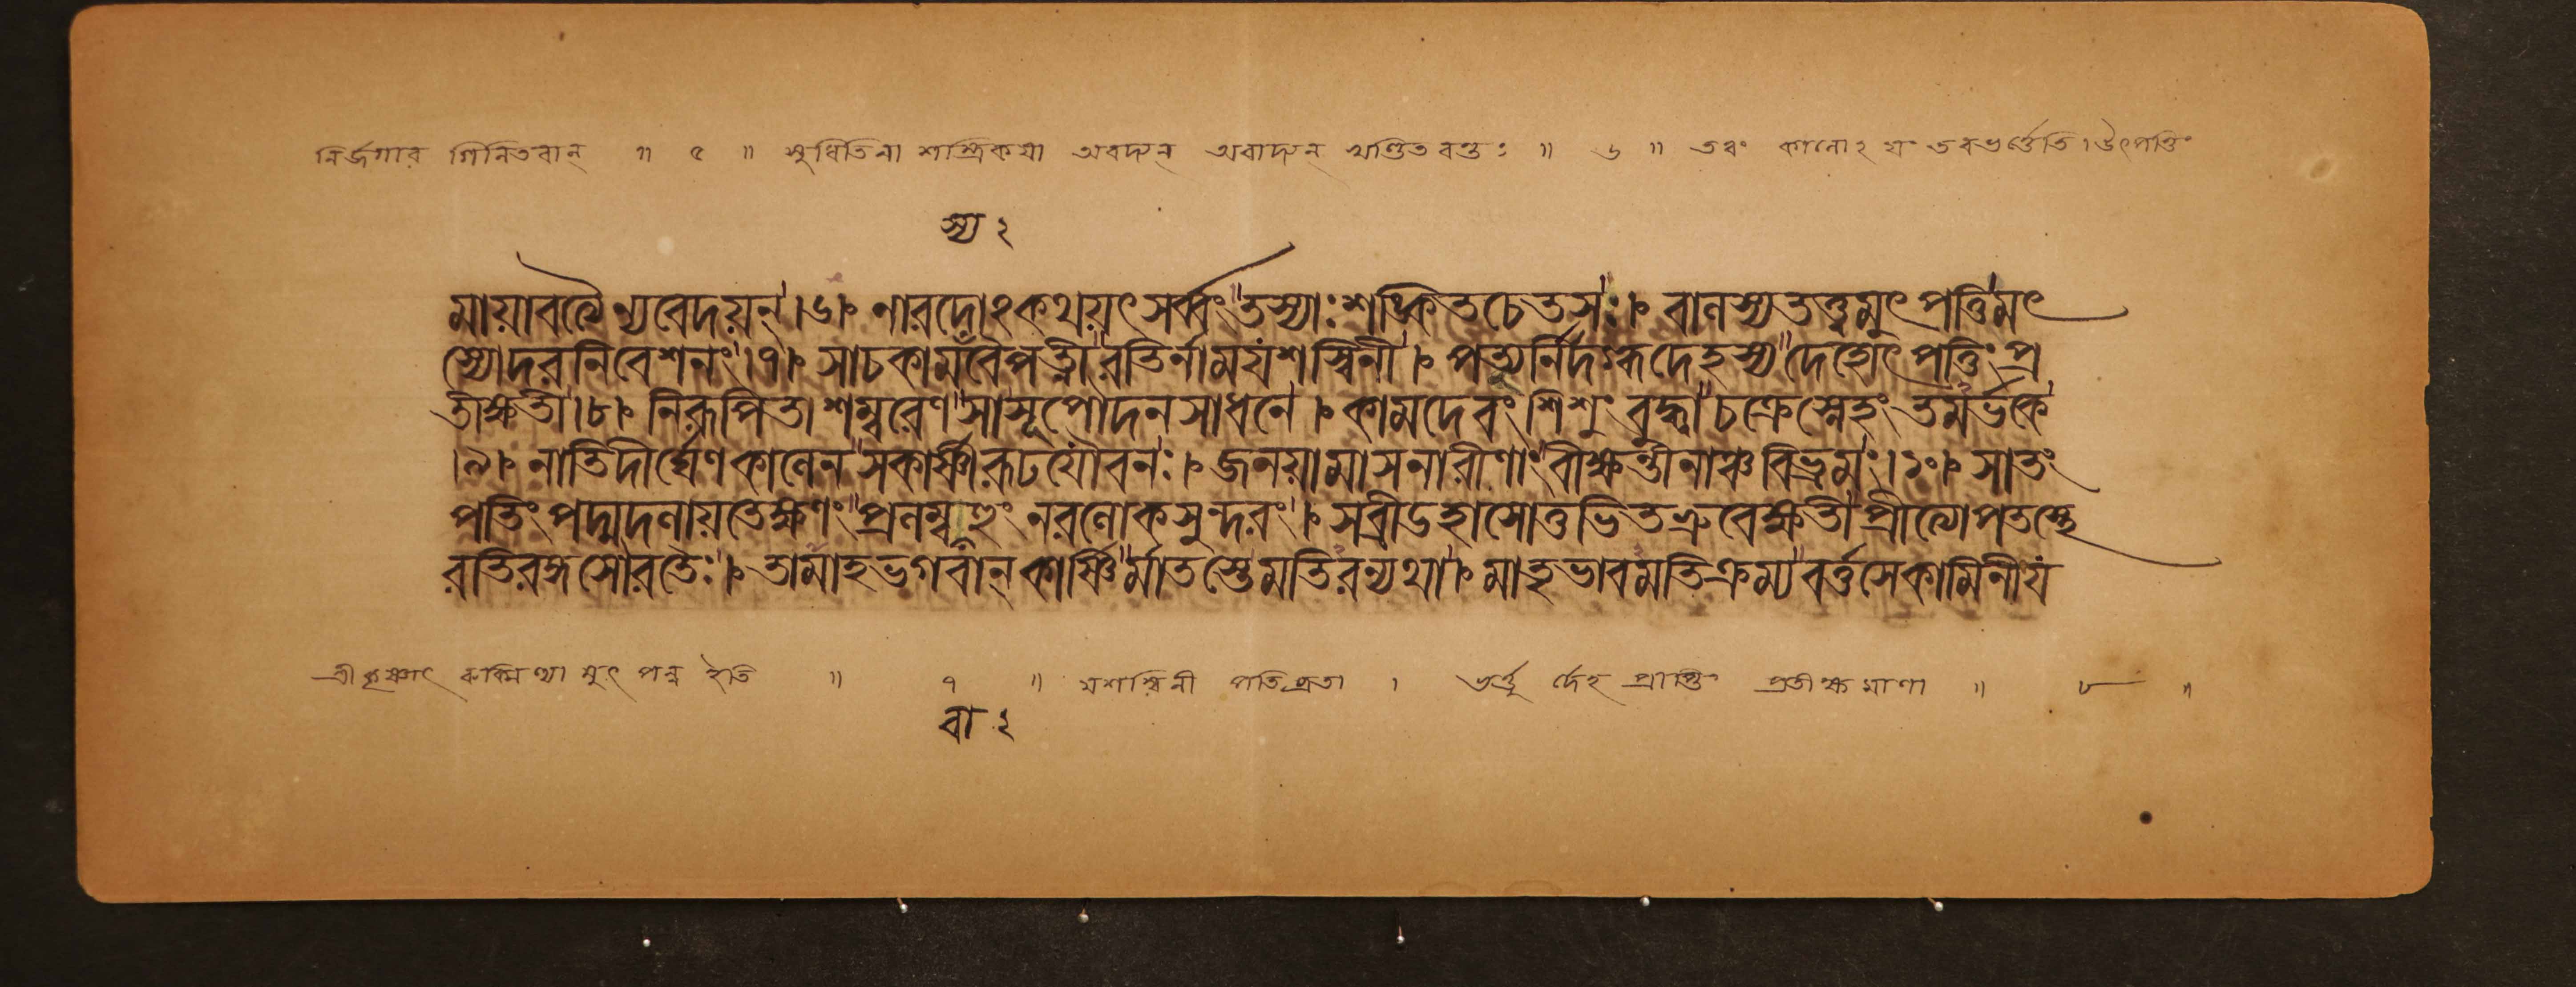 নির্জগার গিলিতবান্ ॥ ৫ ॥ সুধিতিনা শস্ত্রিকয়া অবদান্ অবাদান্ খণ্ডিতবন্তঃ ॥ ৬ ॥ তবং কালোঽয়ং তবভর্ত্তেতি । উৎপত্তিং
স্য ২
মায়াবত্যৈন্যবেদয়ন্ ।৬। নারদোঽকথয়ৎসর্ব্বং তস্যাঃশঙ্কিতচেতসঃ । বালস্যতত্ত্বমুৎপত্তিমৎ
স্যোদরনিবেশনং ।৭। সাচকামস্যবৈপত্নী রতির্নামযশস্বিনী । পত্যুর্নির্দগ্ধদেহস্য দেহোৎপত্তিংপ্র
তীক্ষতী ।৮। নিরূপিতাশম্বরেণ সাসূপৌদনসাধনে । কামদেবংশিশুংবুদ্ধ্বা চক্রেস্নেহংতমর্ভকে
।৯। নাতিদীর্ঘেণকালেন সকার্ষ্ণীরূঢযৌবনঃ । জনয়ামাসনারীণাং বীক্ষন্তীনাঞ্চবিভ্রমং ।১০। সাতং
পতিং পদ্মদলায়তেক্ষণং প্রলম্ববাহুং নরলোকসুন্দরং । সব্রীডহাসোত্তভিতভ্রুবেক্ষতী প্রীত্যোপতস্থে
রতিরঙ্গসৌরতৈঃ । তামাহভগবান্ কার্ষ্ণির্মাতস্তেমতিরন্যথা । মাতৃভাবমতিক্রম্য বর্ত্তসেকামিনীযং
শ্রীকৃষ্ণাৎ রুক্মিণ্যা মুৎপন্ন ইতি ॥ ৭ ॥ যশস্বিনী পতিব্রতা । ভর্ত্তৃর্দেহ প্রাপ্তিং প্রতীক্ষমাণা ॥ ৮ ॥
বা ২